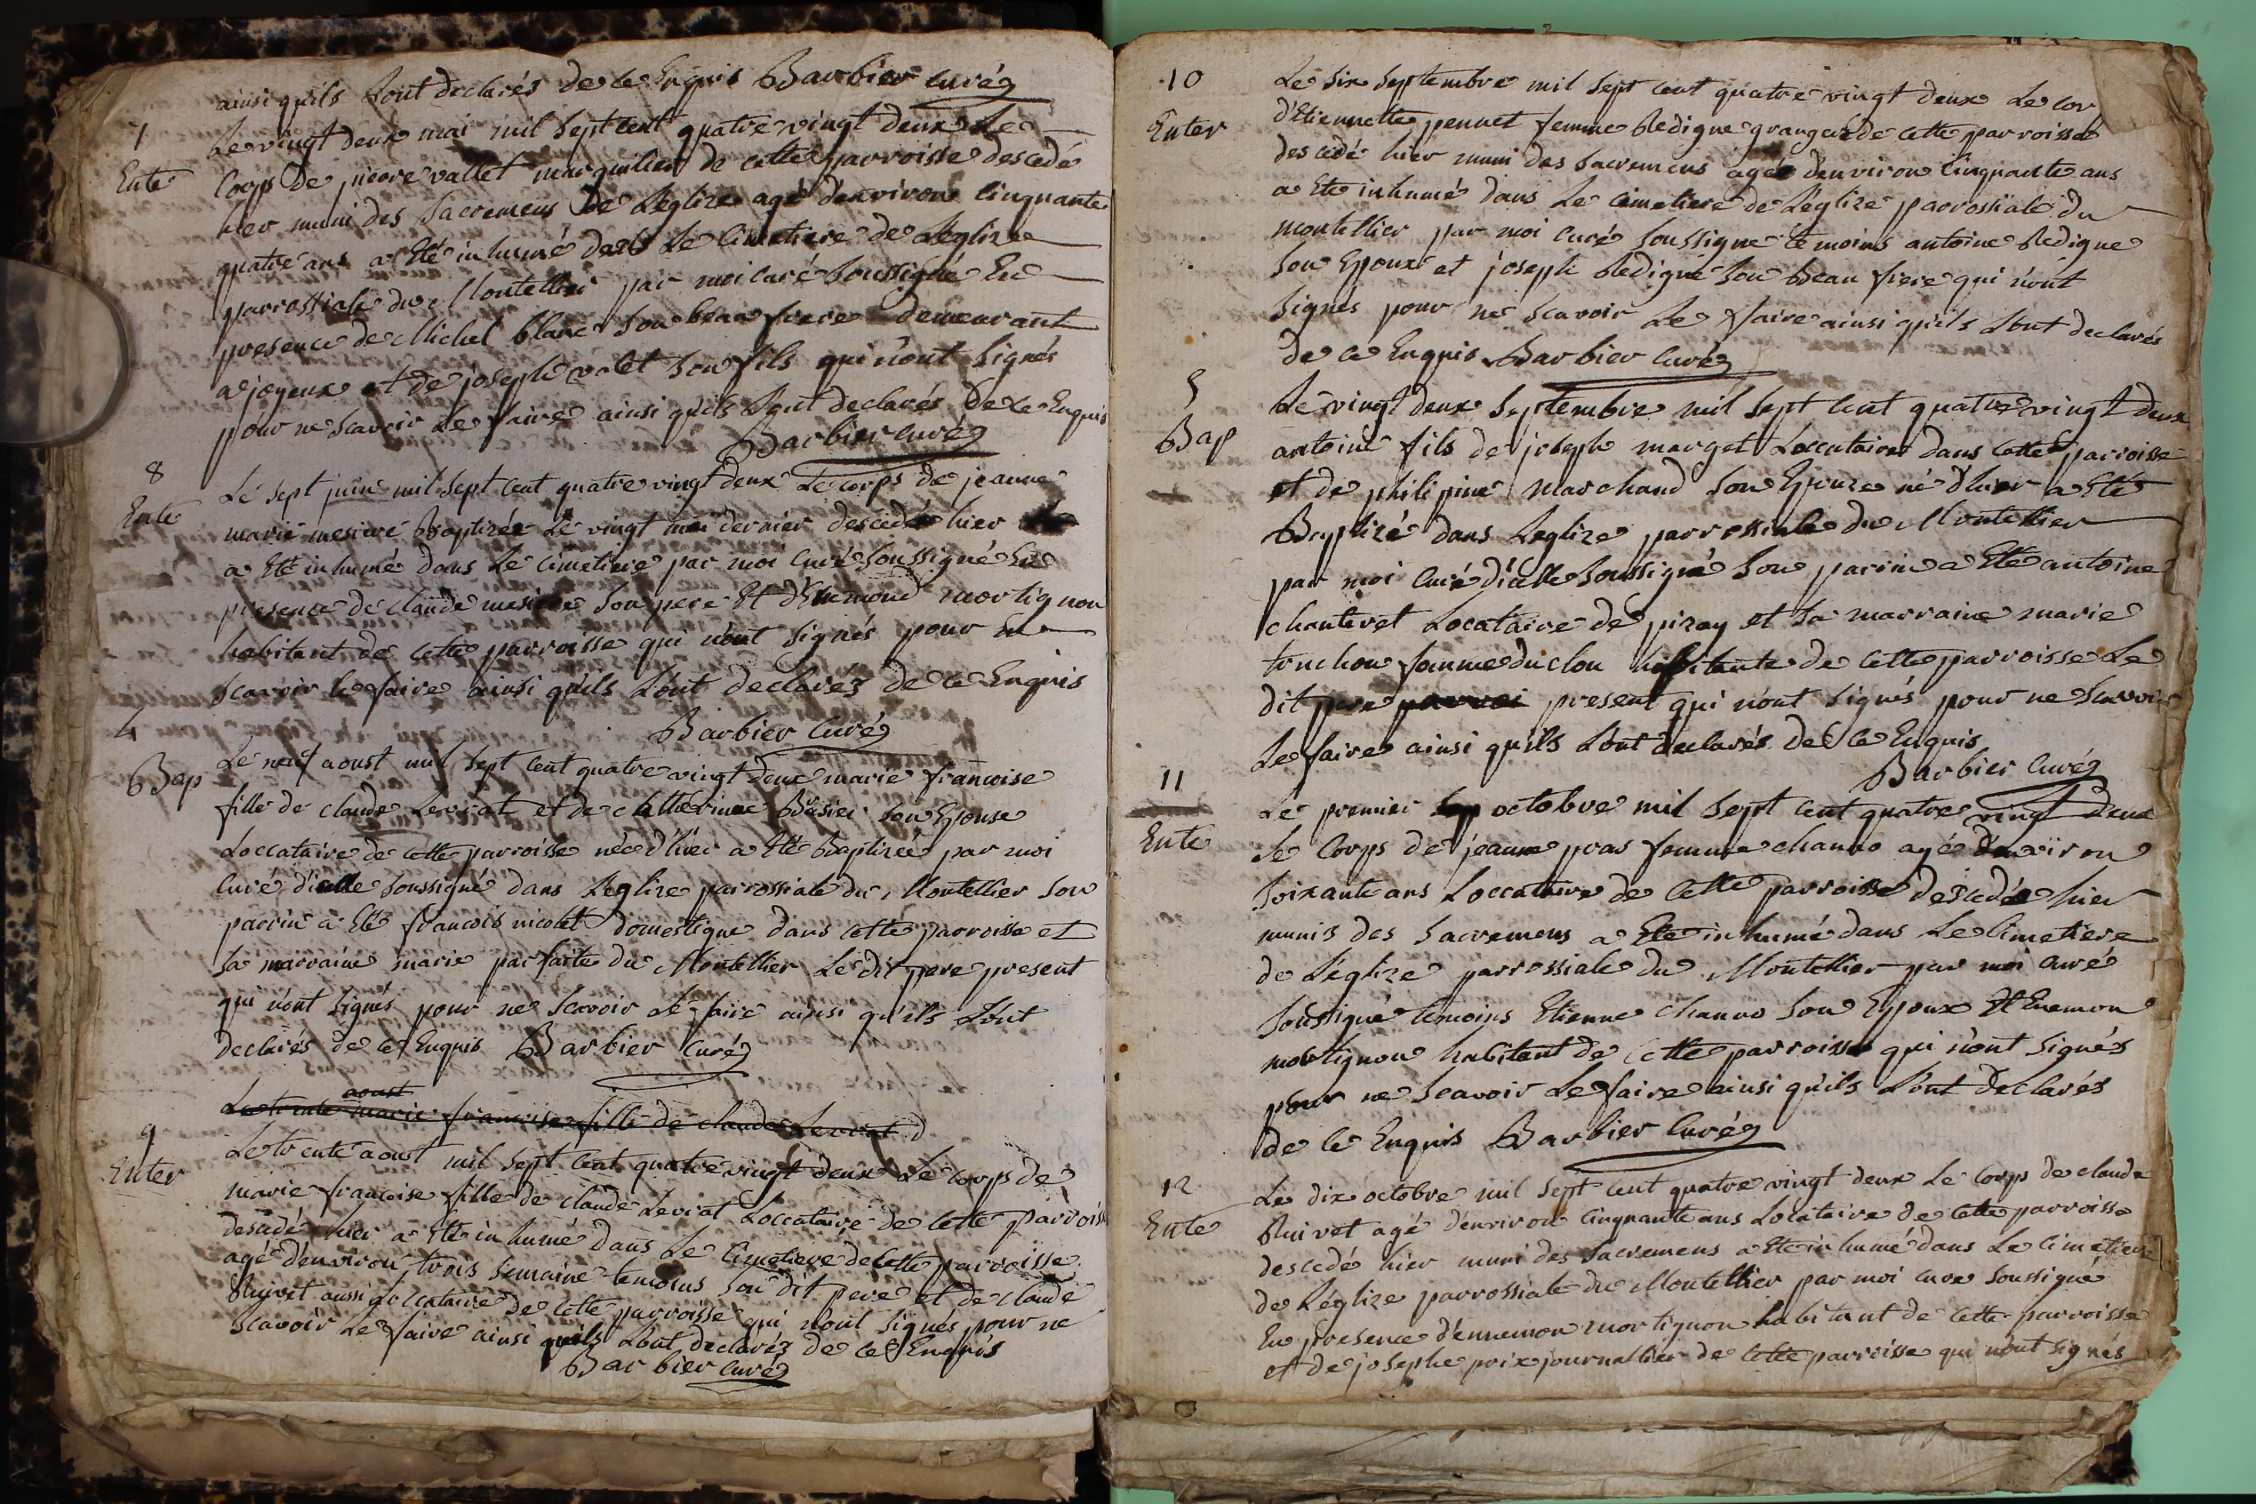 ainsi qu'ils L'ont declarés de ce Enquis Barbier curé
7
Le vingt deux mai mil sept cent quatre vingt deux Le
Ente
Corps de pierre vallet marguilier de cette parroisse descedé
hier muni des Sacremens de L'eglize agé d'environ Cinquante
quatre ans a Eté inhumé dans Le Cimetiere de L'eglize
parrossiale du Montellier par moi curé Soussigné En
presence de Michel blanc Son beau frere demeurant
a joyeux et de joseph valet Son fils qui n'ont Signés
pour ne Scavoir Le faire ainsi qu'ils L'ont declarés De ce Enquis
Barbier curé
8
Le sept juin mil sept cent quatre vingt deux Le corps de jeanne
Ente
marie mesiere Baptizée Le vingt mai dernier descedée hier
a Eté inhumé dans Le Cimetiere par moi curé Soussigné En
presence de Claude mesiere Son pere Et d'Enemond mortignon
habitant de cette parroisse qui n'ont Signés pour ne
Scavoir le faire ainsi qu'ils L'ont declarez de ce Enquis
Barbier Curé
4
Le neuf aoust mil sept cent quatre vingt deux marie francoise
Bap
fille de claude Levrat et de Catherinne Busier Son Epouse
Loccataire de cette parroisse née d'hier a Eté Baptizée par moi
Curé d'icelle Soussigné dans L'eglize parrossiale du Montellier Son
parrin a Eté francois nicolet domestique dans cette parroisse et
Sa marraine marie parfaite du Montellier Le dit pere present
qui n'ont Signés pour ne Scavoir Le faire ainsi qu'ils L'ont
declarés de ce Enquis Barbier Curé
aoust
Le trente marie francoise fille de claude Levrat d
9
Le trente aoust mil sept cent quatre vingt deux Le corps de
Enter
marie francoise fille de claude Levrat Loccataire de cette parroisse
descedé hier a Eté inhumé dans Le Cimetiere de cette parroisse
agé d'environ trois Semaine temoins Son dit pere et de claude
Ruivet aussi Loccataire de cette parroisse qui n'ont Signés pour ne
Scavoir Le faire ainsi qu'ils L'ont declarés de ce Enquis
Barbier curé
10
Le Six Septembre mil Sept Cent quatre vingt deux Le cor
Enter
d'Etiennette pennet femme Bedigne granger de cette parroisse
descedé hier muni des Sacremens agée d'environ Cinquante ans
a Eté inhumé dans Le Cimetiere de L'eglize parrossiale du
Montellier par moi curé Soussigné temoins antoine Bedigne
Son Epoux et joseph Bedigne Son Beau frere qui n'ont
Signés pour ne Scavoir Le faire ainsi qu'ils L'ont declarés
de ce Enquis Barbier Curé
5
Le vingt deux Septembre mil Sept Cent quatre vingt deux
Bap
antoine fils de joseph marget Loccataire dans cette parroisse
et de philipine marchand Son Epouze né d'hier a Eté
Baptizé dans L'eglize parrossiale du Montellier
par moi Curé d'icelle Soussigné Son parrin a Eté antoine
chanteret Locataire de pizay et Sa marraine marie
tonchon femme du clou habitante de cette parroisse Le
dit pere present qui n'ont Signés pour ne Scavoir
Le faire ainsi qu'ils L'ont declarés de ce Enquis
Barbier Curé
11
Le premier Sep octobre mil Sept Cent quatre vingt deux
Ente
Le Corps de jeanne pras femme chanuo agé d'environ
Soixante ans Loccataire de cette parroisse descedée hier
munis des Sacremens a Eté inhumé dans Le Cimetiere
de L'eglize parrossiale du Montellier par moi curé
Soussigné temoins Etienne chanuo Son Epoux Et Enemon
mortignon habitant de cette parroisse qui n'ont Signés
pour ne Scavoir Le faire ainsi qu'ils L'ont declarés
de ce Enquis Barbier Curé
12
Le dix octobre mil Sept Cent quatre vingt deux Le corps de claude
Ente
Ruivet agé d'environ Cinquante ans Locataire de cette parroisse
descedé hier muni des Sacremens a Eté inhumé dans Le Cimetiere
de L'églize parrossiale du Montellier par moi curé Soussigné
En presence d'ennemon mortignon habitant de cette parroisse
et de josephe poix journallier de cette parroisse qui n'ont Signés